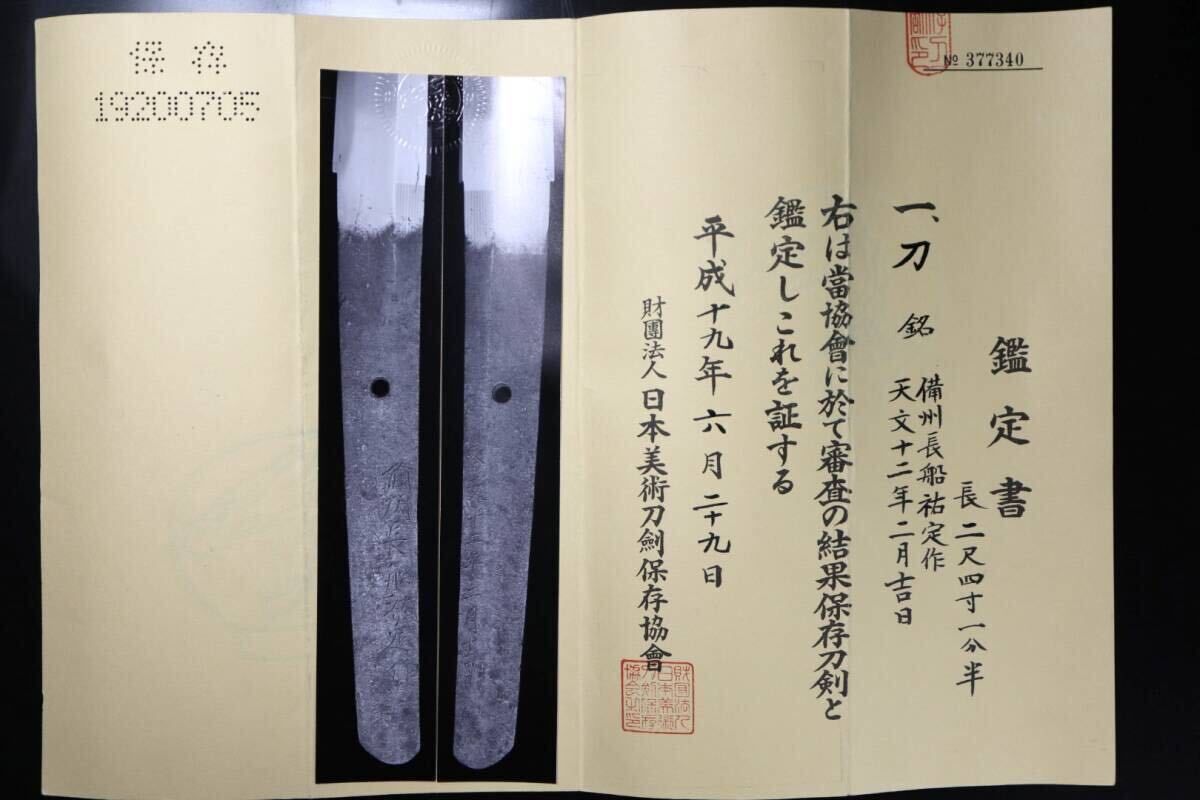 № 377340
鑑定書
長 二尺四寸一分半
一、刀 銘 備州長船祐定作
天文十二年二月吉日
右は當協會に於て審査の結果保存刀剣と
鑑定しこれを証する
平成十九年六月二十九日
財團法人日本美術刀劍保存協會
保存
19200705